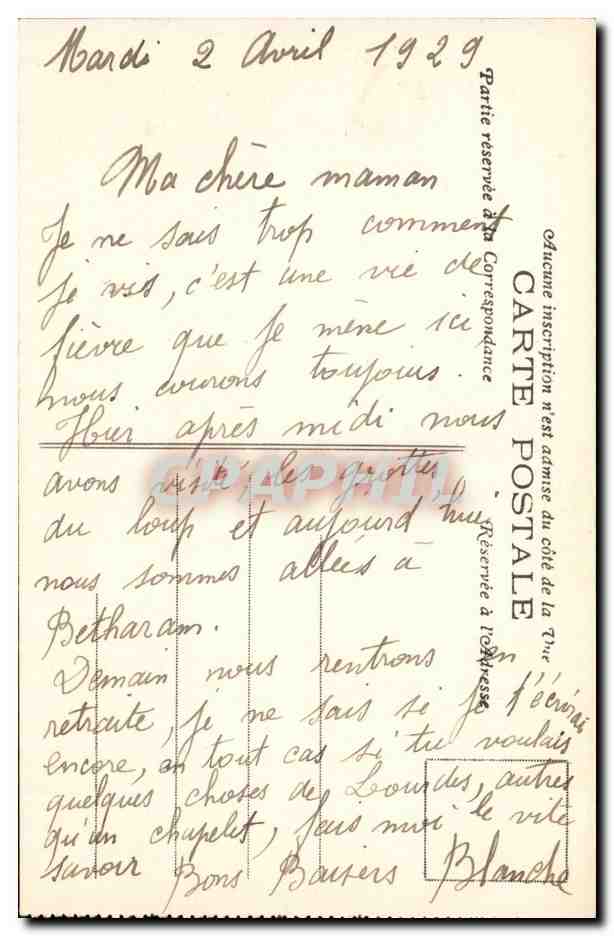 Mardi 2 Avril 1929
Ma chère maman
Je ne sais trop comment
je vis, c'est une vie de
fièvre que je mène ici,
nous courons toujours.
Hier après midi nous
avons visité, les grottes
du loup et aujourd'hui
nous sommes allées à
Betharam.
Demain nous rentrons en
retraite, je ne sais si je t'écrirai
encore, en tout cas si tu voulais
quelques choses de Lourdes, autres
qu'un chapelet, fais moi le vite
savoir Bons Baisers Blanche
Aucune inscription n'est admise du côté de la Vue
CARTE POSTALE
Partie réservée à la Correspondance
Réservée à l'Adresse
CPAPHIL